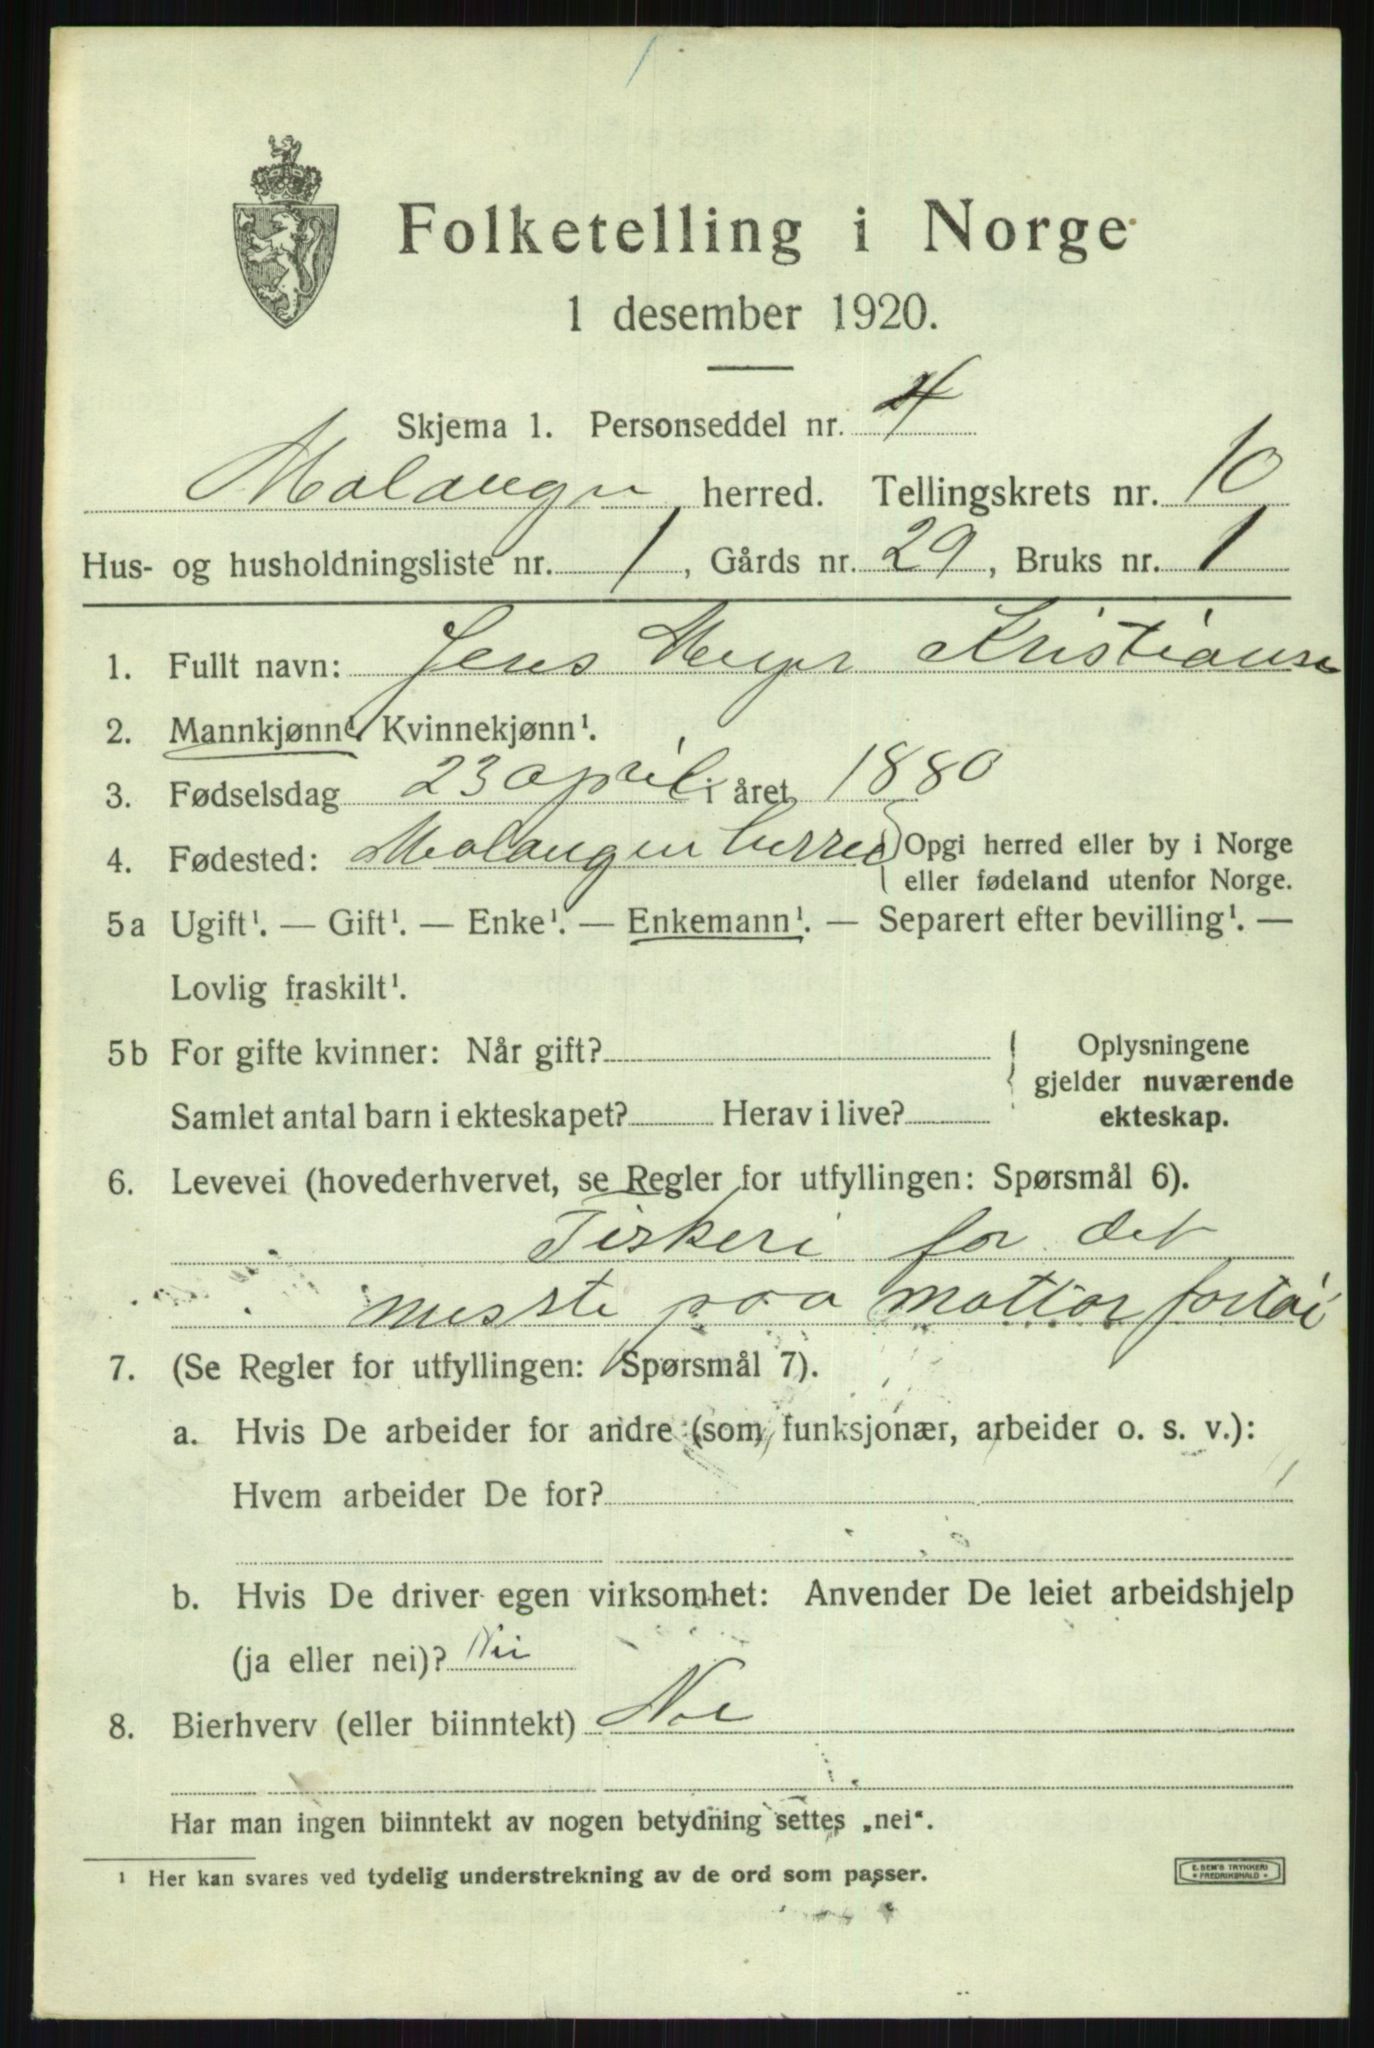 Folketelling i Norge
1 desember 1920.
Skjema 1. Personseddel nr. 4
Malangen herred. Tellingskrets nr. 10
Hus- og husholdningsliste nr. 1, Gårds nr. 29, Bruks nr. 1
1. Fullt navn: Jens Meyer Kristiansen
2. Mannkjønn¹. Kvinnekjønn¹.
3. Fødselsdag 23 april i året 1880
4. Fødested: Malangen herred Opgi herred eller by i Norge
eller fødeland utenfor Norge.
5a Ugift¹. — Gift¹. — Enke¹. — Enkemann¹. — Separert efter bevilling¹. —
Lovlig fraskilt¹.
5b For gifte kvinner: Når gift?
Samlet antal barn i ekteskapet? Herav i live?
Oplysningene
gjelder nuværende
ekteskap.
6. Levevei (hovederhvervet, se Regler for utfyllingen: Spørsmål 6).
Fiskeri for det
meste paa mottor fortøi
7. (Se Regler for utfyllingen: Spørsmål 7).
a. Hvis De arbeider for andre (som funksjonær, arbeider o. s. v.):
Hvem arbeider De for?
b. Hvis De driver egen virksomhet: Anvender De leiet arbeidshjelp
(ja eller nei)? Nei
8. Bierhverv (eller biinntekt) Nei
Har man ingen biinntekt av nogen betydning settes „nei“.
¹ Her kan svares ved tydelig understrekning av de ord som passer.
E. SEM'S TRYKKERI
FREDRIKSHALD